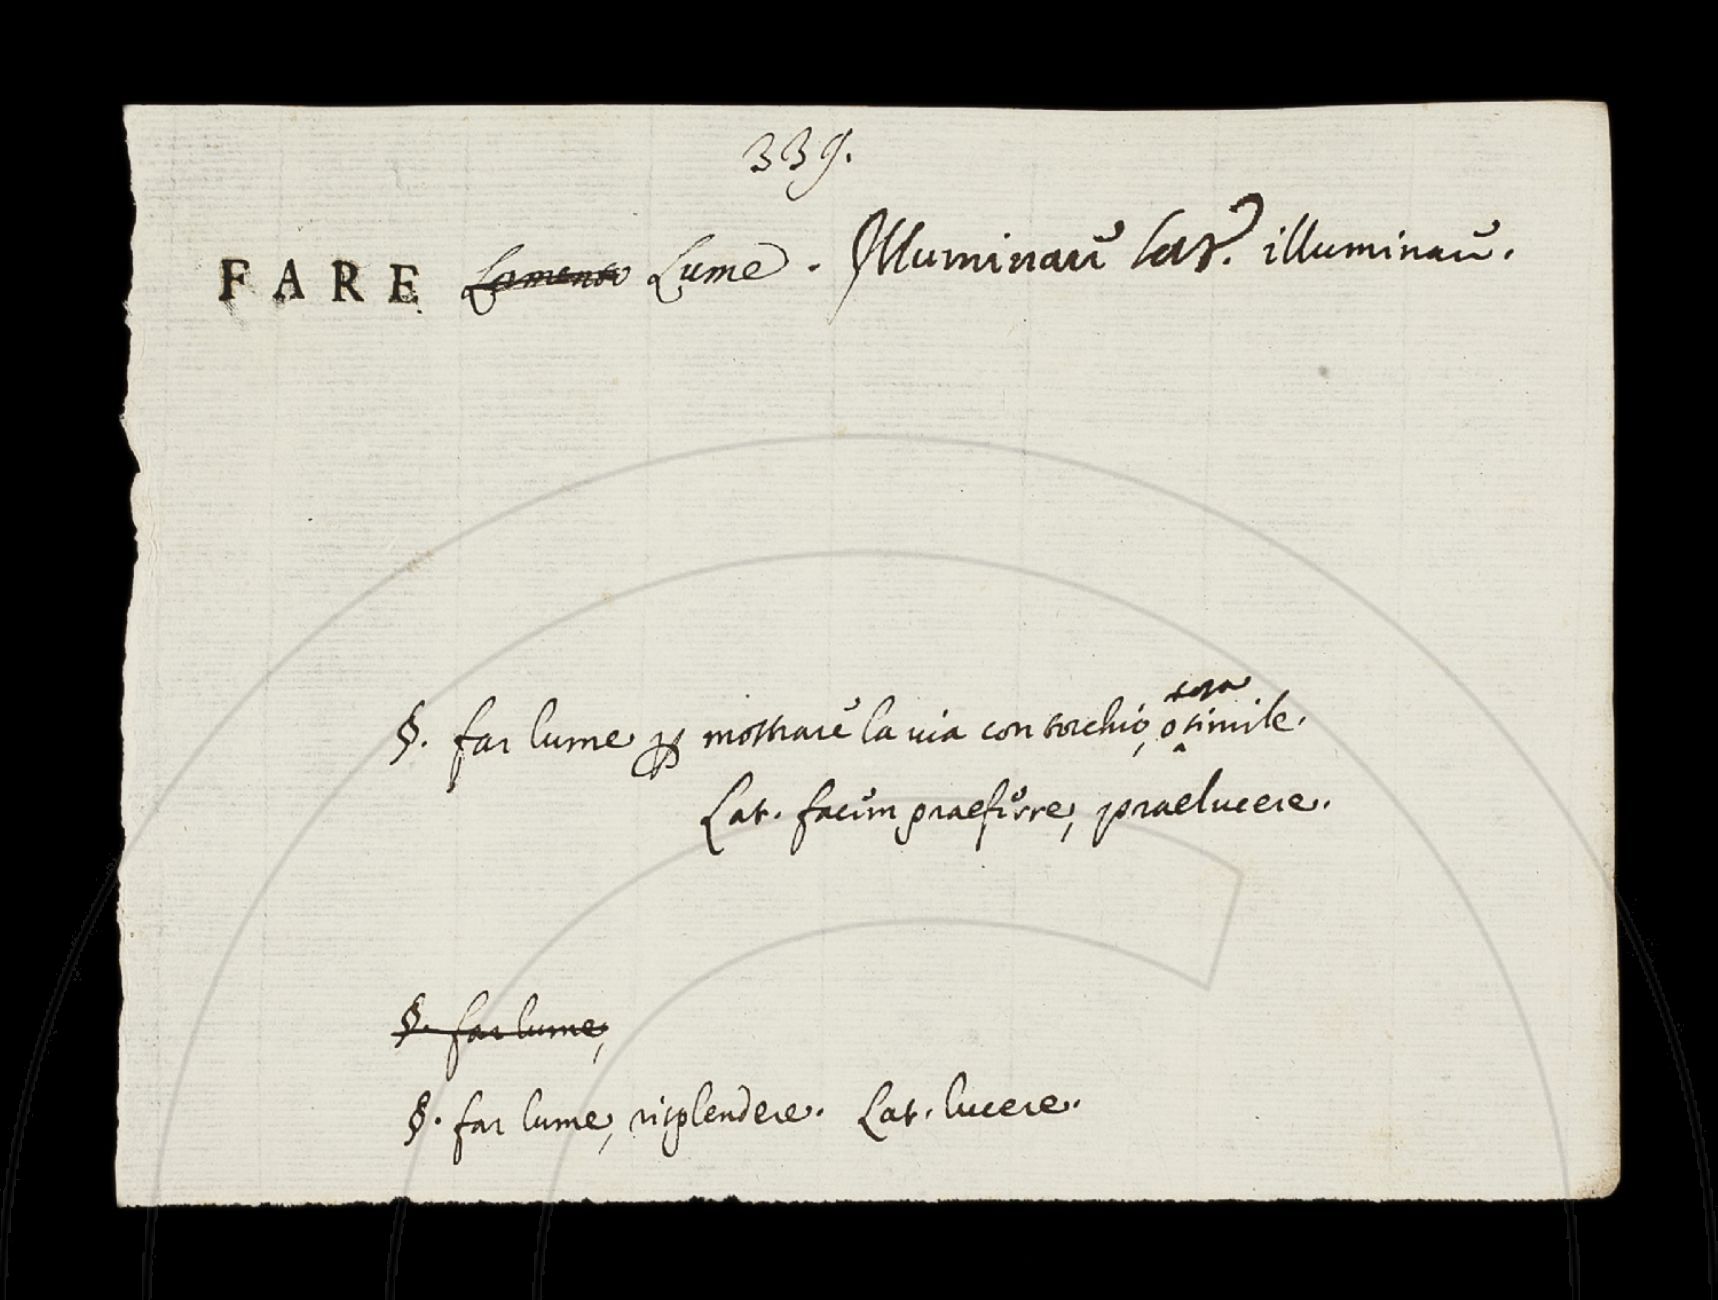 339.
FARE Lamento Lume. Illuminare Lat. illuminare.
§. far lume per mostrare la via con torchio, o torcia simile.
Lat. facem praeferre, praelucere.
§. far lume,
§. far lume, risplendere. Lat. lucere.